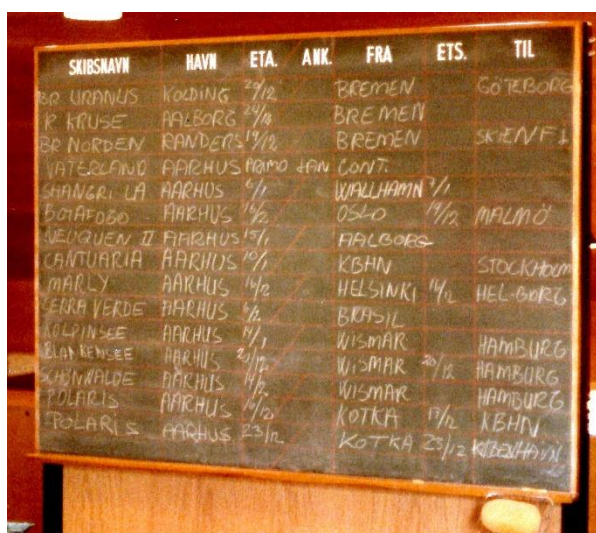 SKIBSNAVN HAVN ETA. ANK. FRA ETS. TIL
BR URANUS KOLDING 29/12 BREMEN GÖTEBORG
R KRUSE AALBORG BREMEN
BR NORDEN RANDERS 19/12 BREMEN SKIEN
VATERLAND AARHUS PRIMO JAN CONT.
SHANGRI LA AARHUS 6/1 WALLHAMN 7/1
BOTAFOGO AARHUS 16/12 OSLO 19/12 MALMÖ
NEUQUEN II AARHUS 15/1 AALBORG
CANTUARIA AARHUS 10/1 KBHN STOCKHOLM
MARLY AARHUS HELSINKI HEL-BORG
SERRA VERDE AARHUS BRASIL
KÖLPINSEE AARHUS WISMAR HAMBURG
BLANKENSEE AARHUS WISMAR 20/12 HAMBURG
SCHÖNWALDE AARHUS WISMAR HAMBURG
POLARIS AARHUS KOTKA 17/12 KBHN
POLARIS AARHUS 23/12 KOTKA 23/12 KØBENHAVN